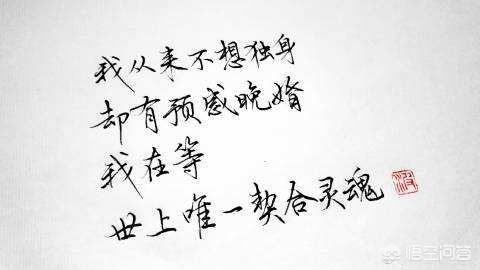 我从来不想独身
却有预感晚婚
我在等
世上唯一契合灵魂
悟空问答